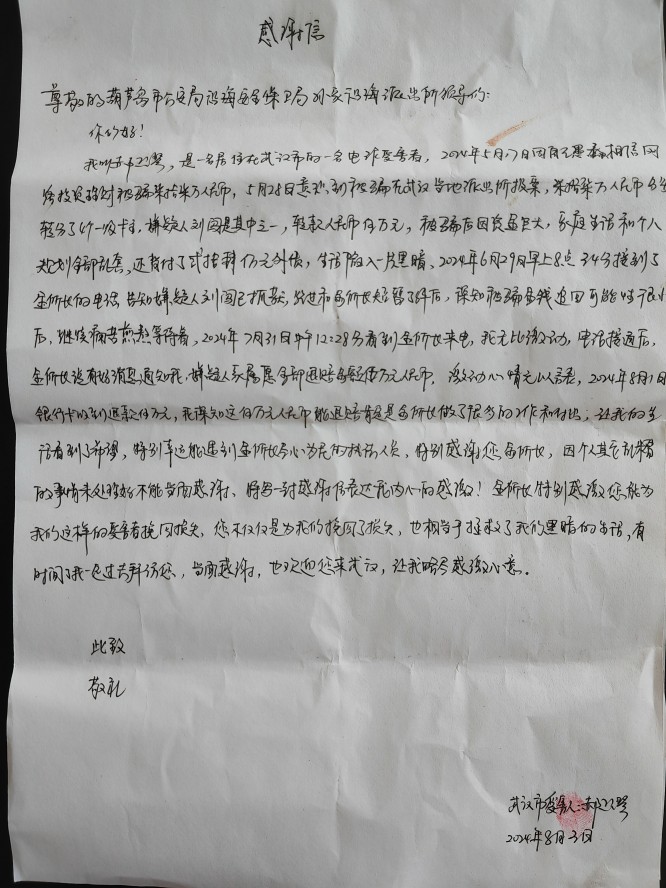 感谢信
尊敬的葫芦岛市公安局沿海安全保卫局刘家沿海派出所领导们:
你们好!
我叫,是一名居住在武汉市的一名电诈受害者,2024年5月17日因自己愚蠢相信网
络投资被骗人民币,5月28日意识到被骗在武汉当地派出所报案,人民币
转了47一级卡主,嫌疑人刘闯是其中之一,转款人民币伍万元,被骗后因资金巨大,家庭生活和个人
计划全部乱套,还背负了万元外债,生活陷入一片黑暗、2024年6月29日早上8点34分接到了
金所长的电话告知嫌疑人刘闯已抓获,经过和金所长短暂了解后,深知被骗金钱追回可能性很小
后,继续痛苦煎熬等待着,2024年7月31日中午12:28分看到金所长来电,我无比激动,电话接通后,
金所长说有好消息通知我,嫌疑人家属愿全部退赔金额伍万元人民币,激动心情无以言表,2024年8月1日
银行卡收到退款伍万元,我深知这伍万元人民币能退赔肯定是金所长做了很多的工作和付出,让我的生
活看到了希望,特别幸运能遇到金所长尽心为民的执法人员,特别感谢您金所长,因个人其它乱糟糟
的事情未处理好不能当面感谢、特写一封感谢信表达我内心的感激!金所长特别感激您能为
我们这样的受害者挽回损失,您不仅仅是为我们挽回了损失,也相当于拯救了我们黑暗的生活,有
时间了我一定过去拜访您,当面感谢,也欢迎您来武汉,让我略尽感激心意。
此致
敬礼
武汉市受害人:
2024年8月3日